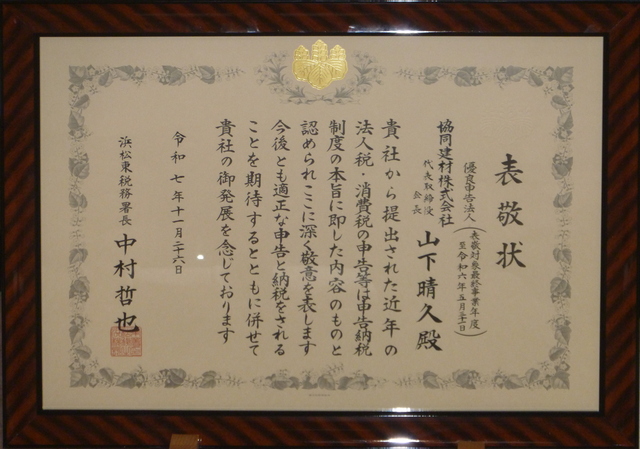 表敬状
優良申告法人
(表敬対象最終事業年度
至令和六年五月三十一日)
協同建材株式会社
代表取締役
会長
山下晴久殿
貴社から提出された近年の
法人税・消費税の申告等は申告納税
制度の本旨に即した内容のものと
認められここに深く敬意を表します
今後とも適正な申告と納税をされる
ことを期待するとともに併せて
貴社の御発展を念じております
令和七年十一月二十六日
浜松東税務署長
中村哲也